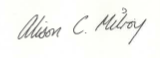 Alison C. Milroy